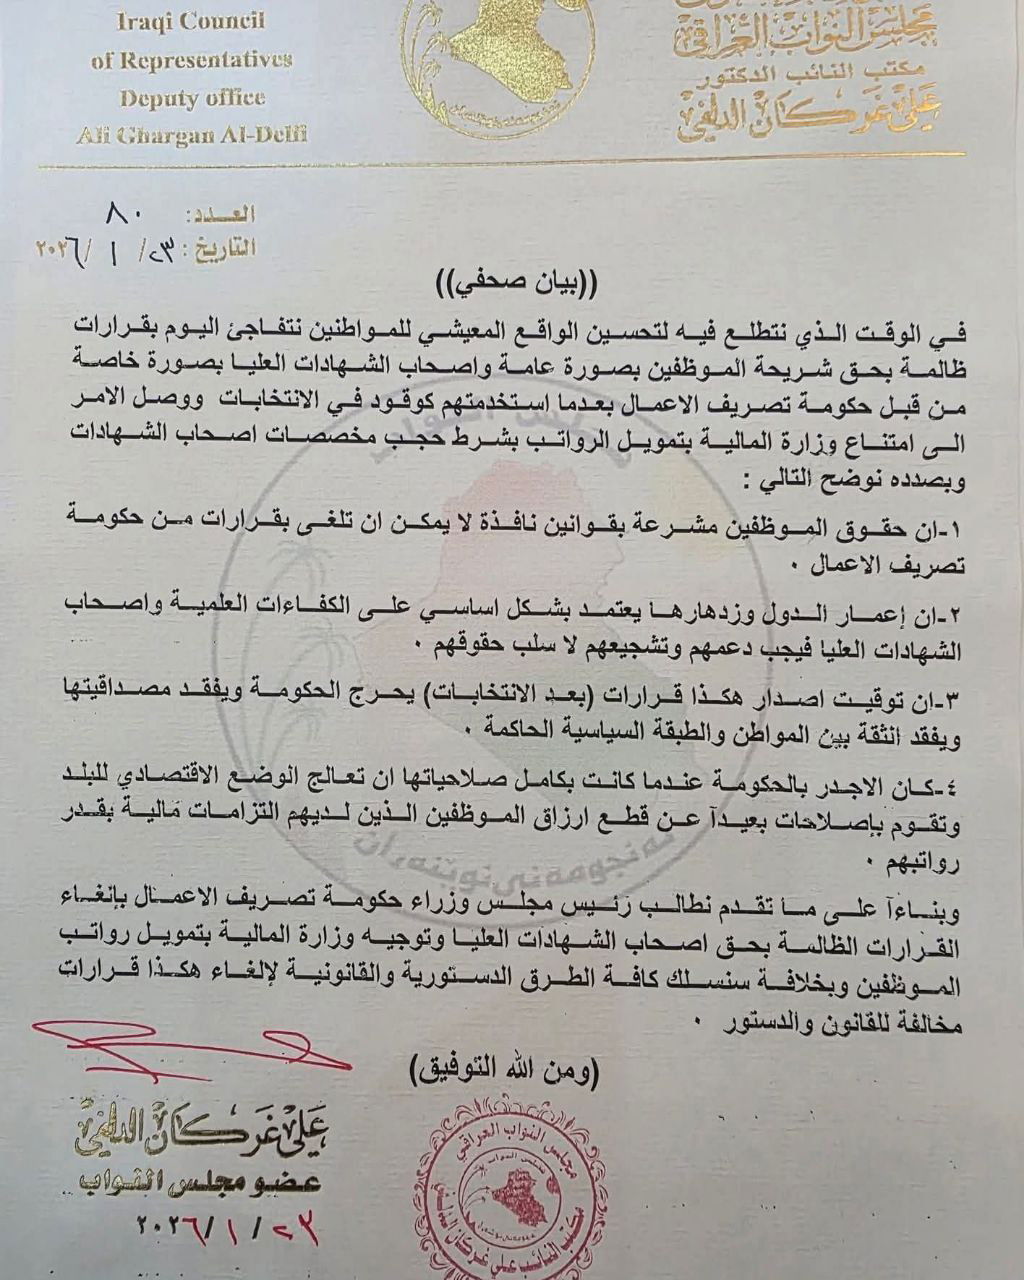 Iraqi Council
of Representatives
Deputy office
Ali Ghargan Al-Delfi
مجلس النواب العراقي
مكتب النائب الدكتور
علي غركان الدلفي
العدد: ٨٠
التاريخ: ٢٣/ ١ /٢٠٢٦
((بيان صحفي))
في الوقت الذي نتطلع فيه لتحسين الواقع المعيشي للمواطنين نتفاجئ اليوم بقرارات
ظالمة بحق شريحة الموظفين بصورة عامة واصحاب الشهادات العليا بصورة خاصة
من قبل حكومة تصريف الاعمال بعدما استخدمتهم كوقود في الانتخابات ووصل الامر
الى امتناع وزارة المالية بتمويل الرواتب بشرط حجب مخصصات اصحاب الشهادات
وبصدده نوضح التالي :
١-ان حقوق الموظفين مشرعة بقوانين نافذة لا يمكن ان تلغى بقرارات من حكومة
تصريف الاعمال .
٢-ان إعمار الدول وزدهارها يعتمد بشكل اساسي على الكفاءات العلمية واصحاب
الشهادات العليا فيجب دعمهم وتشجيعهم لا سلب حقوقهم .
٣-ان توقيت اصدار هكذا قرارات (بعد الانتخابات) يحرج الحكومة ويفقد مصداقيتها
ويفقد الثقة بين المواطن والطبقة السياسية الحاكمة .
٤-كان الاجدر بالحكومة عندما كانت بكامل صلاحياتها ان تعالج الوضع الاقتصادي للبلد
وتقوم بإصلاحات بعيدآ عن قطع ارزاق الموظفين الذين لديهم التزامات مالية بقدر
رواتبهم .
وبناءآ على ما تقدم نطالب رئيس مجلس وزراء حكومة تصريف الاعمال بإلغاء
القرارات الظالمة بحق اصحاب الشهادات العليا وتوجيه وزارة المالية بتمويل رواتب
الموظفين وبخلافة سنسلك كافة الطرق الدستورية والقانونية لإلغاء هكذا قرارات
مخالفة للقانون والدستور .
(ومن الله التوفيق)
علي غركان الدلفي
عضو مجلس النواب
٢٣ / ١ / ٢٠٢٦
مجلس النواب العراقي
مجلس النواب
مكتب النائب علي غركان الدلفي